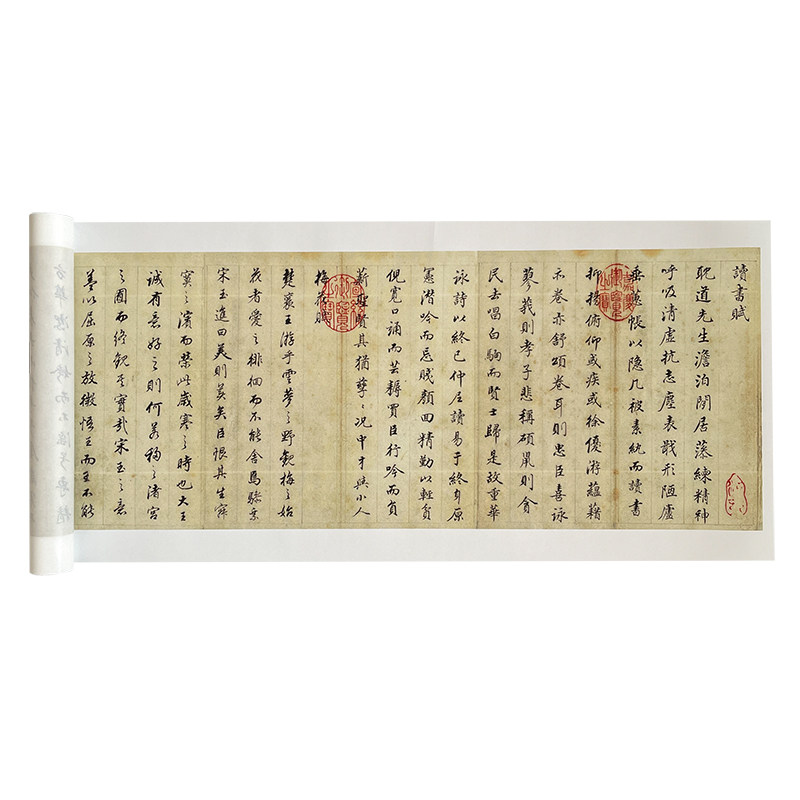 讀書賦
耽道先生澹泊閒居藻練精神
呼吸清虛抗志塵表戢形陋廬
垂帷帳以隐几被素紈而讀書
抑揚俯仰或疾或徐優游蘊藉
亦卷亦舒頌卷耳則忠臣喜詠
蓼莪則孝子悲稱碩鼠則貪
民去唱白駒而賢士歸是故重華
詠詩以終已仲尼讀易于終身原
憲潛吟而忘賤顏回精勤以輕貧
倪寬口誦而芸耨買臣行吟而負
薪聖賢其猶孳〻況中才與小人
梅花賦
楚襄王游乎雲夢之野觀梅之始
花者愛之徘徊而不能舍焉驂乘
宋玉進曰美則美矣臣恨其生寂
寞之濱而榮此歲寒之時也大王
誠有意好之則何若移之渚宮
之囿而終觀其實哉宋玉之意
蓋以屈原之放微悟王而王不能